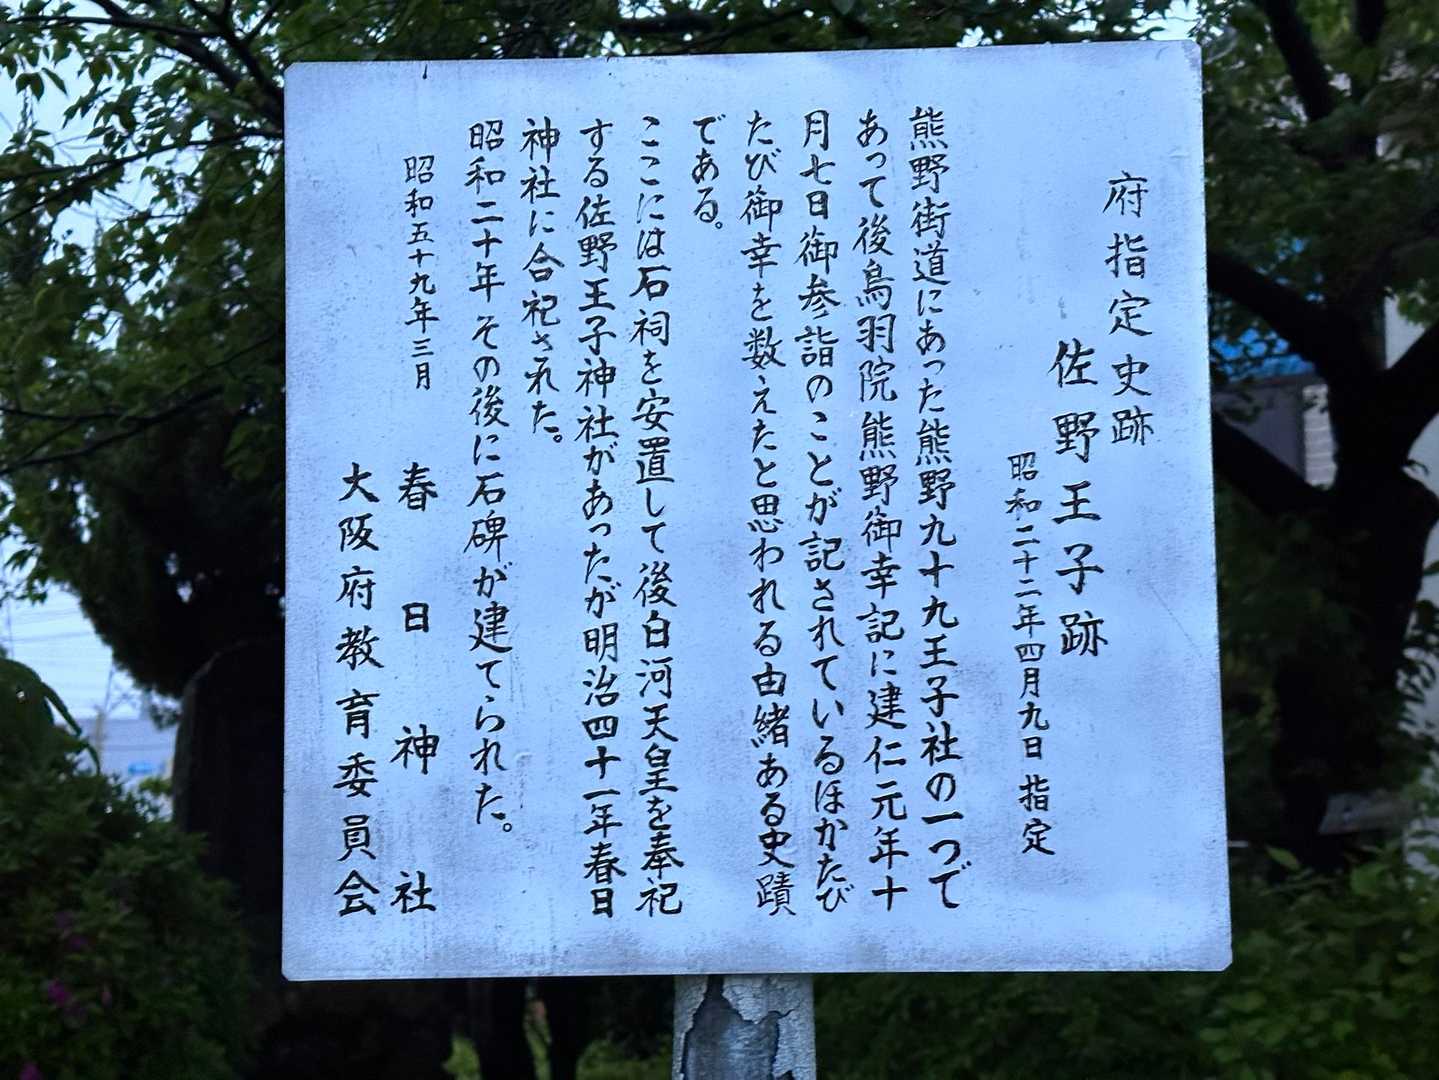 府指定史跡
佐野王子跡
昭和二十二年四月九日指定
熊野街道にあった熊野九十九王子社の一つで
あって後鳥羽院熊野御幸記に建仁元年十
月七日御参詣のことが記されているほかたび
たび御幸を数えたと思われる由緒ある史蹟
である。
ここには石祠を安置して後白河天皇を奉祀
する佐野王子神社があったが明治四十一年春日
神社に合祀された。
昭和二十年その後に石碑が建てられた。
昭和五十九年三月
春日神社
大阪府教育委員会